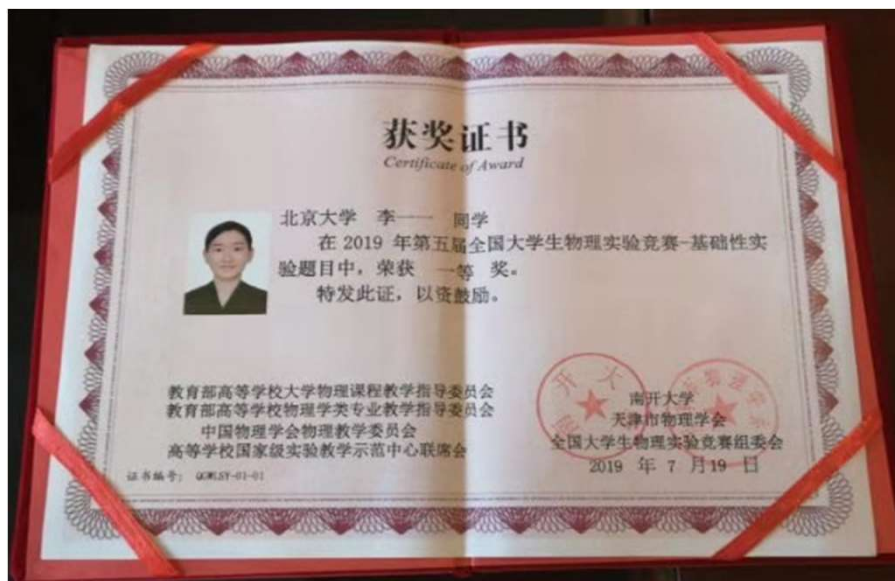 获奖证书
Certificate of Award
北京大学 李一一 同学
在 2019 年第五届全国大学生物理实验竞赛-基础性实
验题目中，荣获 一等 奖。
特发此证，以资鼓励。
教育部高等学校大学物理课程教学指导委员会
教育部高等学校物理学类专业教学指导委员会
中国物理学会物理教学委员会
高等学校国家级实验教学示范中心联席会
南开大学
天津市物理学会
全国大学生物理实验竞赛组委会
2019 年 7 月 19 日
证书编号： QGWLSY-01-01